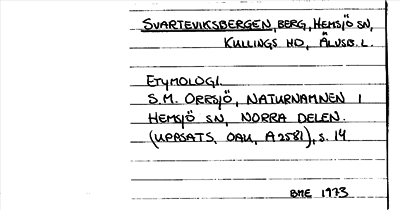 SVARTEVIKSBERGEN, BERG, HEMSJÖ SN,
KULLINGS HD, ÄLVSB. L.
ETYMOLOGI.
S.M. ORRSJÖ, NATURNAMNEN I
HEMSJÖ SN, NORRA DELEN.
(UPPSATS. OAU, A 2581), S. 14
BME 1973